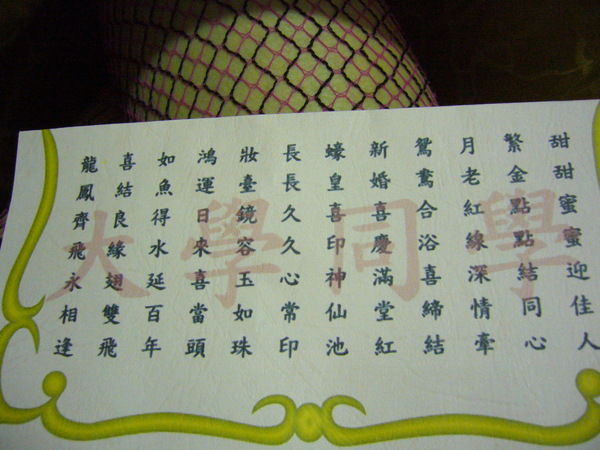 甜甜蜜蜜迎佳人
繁金點點結同心
月老紅線深情牽
鴛鴦合浴喜締結
新婚喜慶滿堂紅
蠔皇喜印神仙池
長長久久心常印
妝臺鏡容玉如珠
鴻運日來喜當頭
如魚得水延百年
喜結良緣翅雙飛
龍鳳齊飛永相逢
大學同學